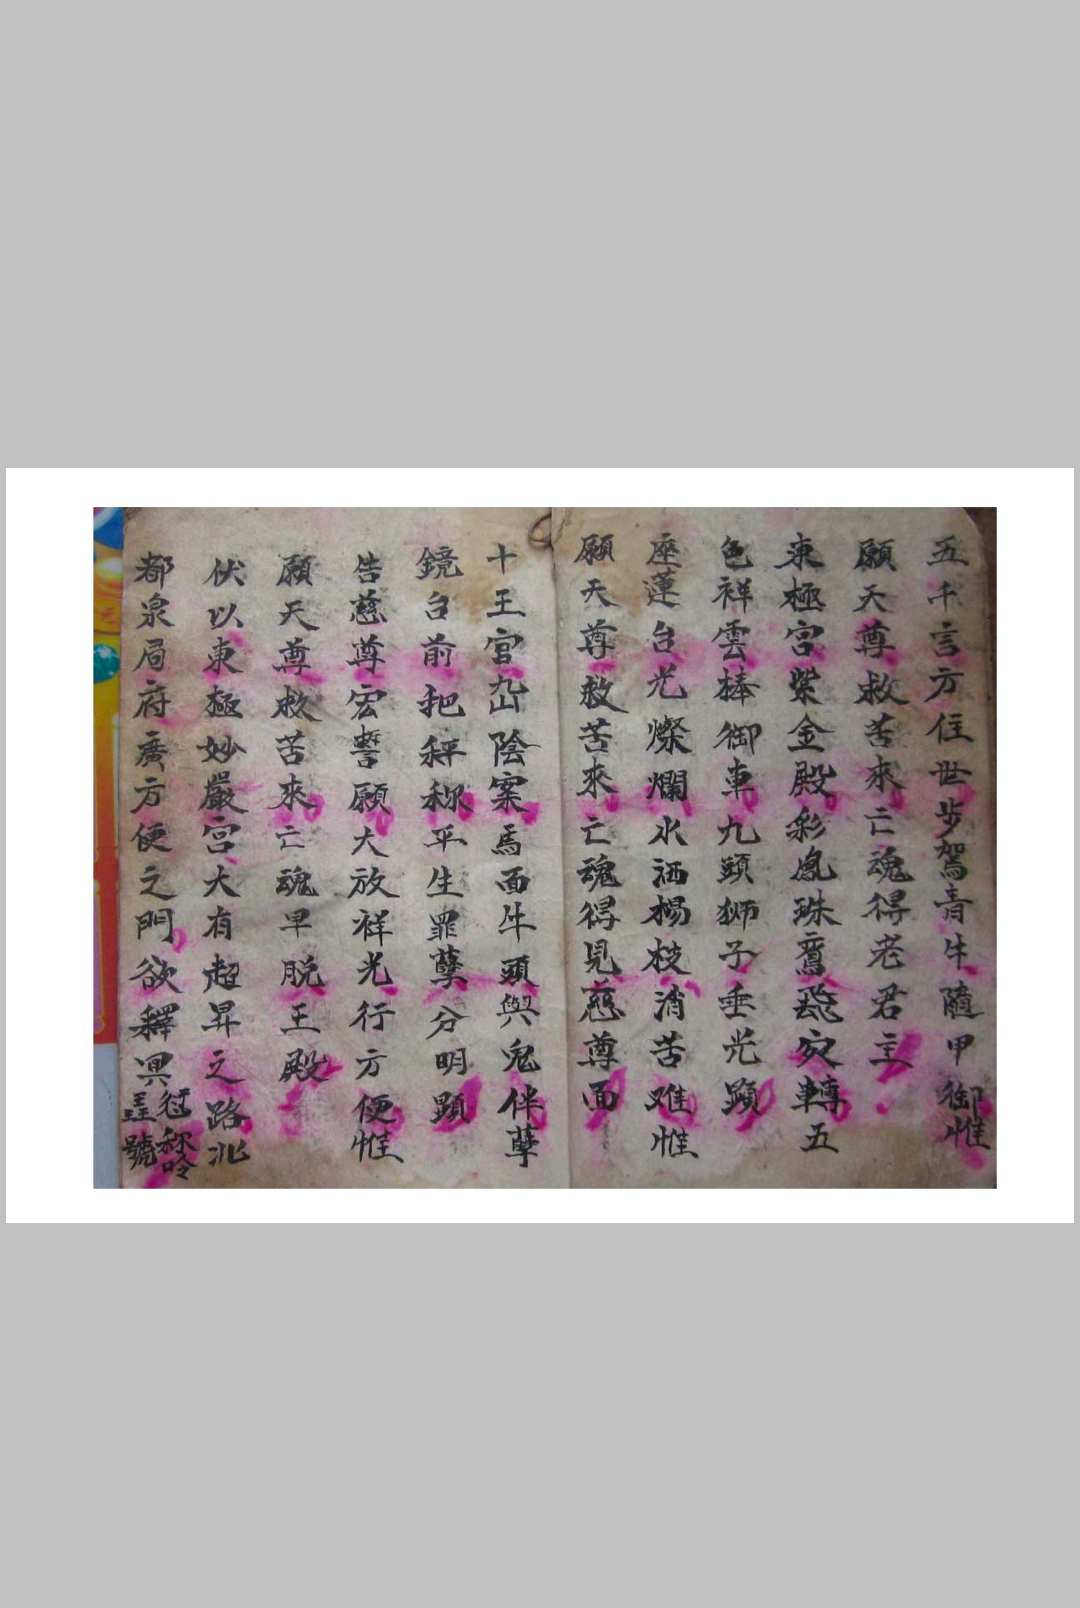 五千言方住世步駕青牛隨甲御惟
願天尊救苦來亡魂得老君主
東極宮紫金殿彩鳳珠鸞飛轉五
色祥雲棒御車九頭獅子垂光顕
座蓮台光燦爛水洒楊枝消苦难惟
願天尊救苦來亡魂得見慈尊面
十王官陰案馬面牛頭與鬼伴孽
鏡台前把秤称平生罪孽分明顕
告慈尊宏誓願大放祥光行方便惟
願天尊救苦來亡魂早脱王殿
伏以東極妙嚴宮大有超昇之路
都泉局府廣方便之門欲釋
號